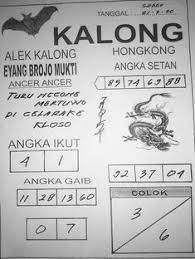 TANGGAL:
KALONG
ALEK KALONG
HONGKONG
EYANG BROJO MUKTI
ANGKA SETAN
ANCER ANCER
85 74 69 88
MERTUWO
DI CELARAKE
KLOSO
ANGKA IKUT
4 1
ANGKA GAIB
32 37 04
11 28 13 60
COLOK
3
6
0 7